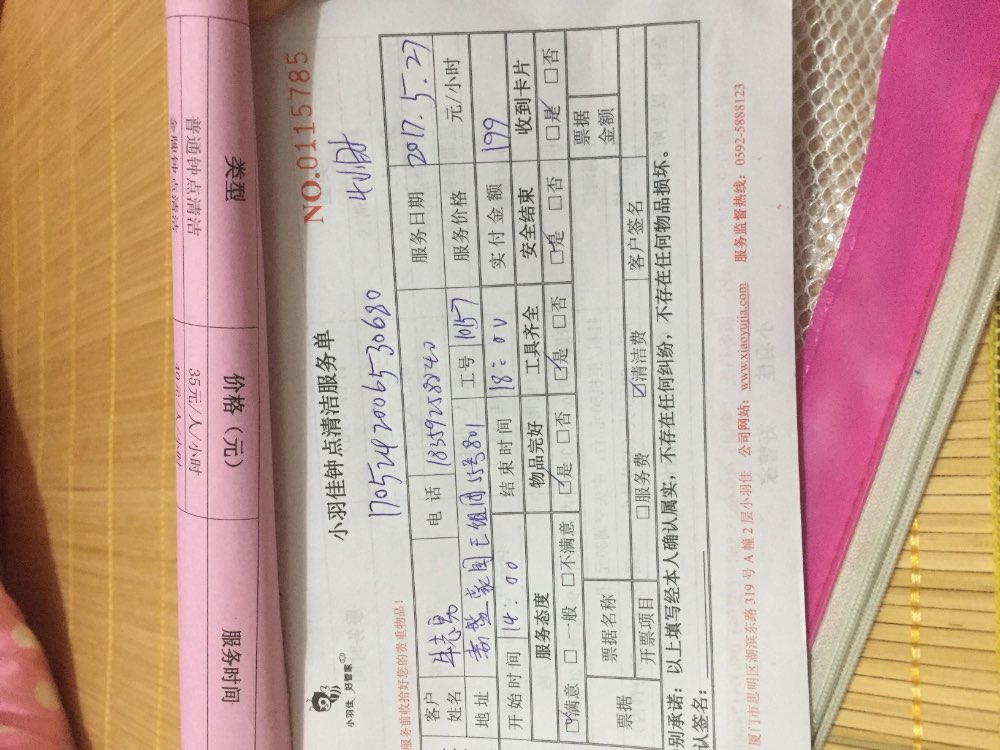 类型 价格（元） 服务时间
普通钟点清洁 35元/人/小时
NO.0115785
小羽佳 好管家
小羽佳钟点清洁服务单
4小时
1705242006530680
服务前收拾好您的贵重物品！
客户姓名 电话 18359258240 服务日期 2017.5.27
地址 工号 10157 服务价格 元/小时
开始时间 14：00 结束时间 18：00 实付金额 199
服务态度 物品完好 工具齐全 安全结束 收到卡片
☑满意 □一般 □不满意 ☑是 □否 ☑是 □否 ☑是 □否 ☑是 □否
票据 票据名称 票据金额
开票项目 □服务费 ☑清洁费 客户签名
别承诺：以上填写经本人确认属实，不存在任何纠纷，不存在任何物品损坏。
认签名：
厦门市思明区湖滨东路319号A幢2层小羽佳 公司网站：www.xiaoyujia.com 服务监督热线：0592-5888123